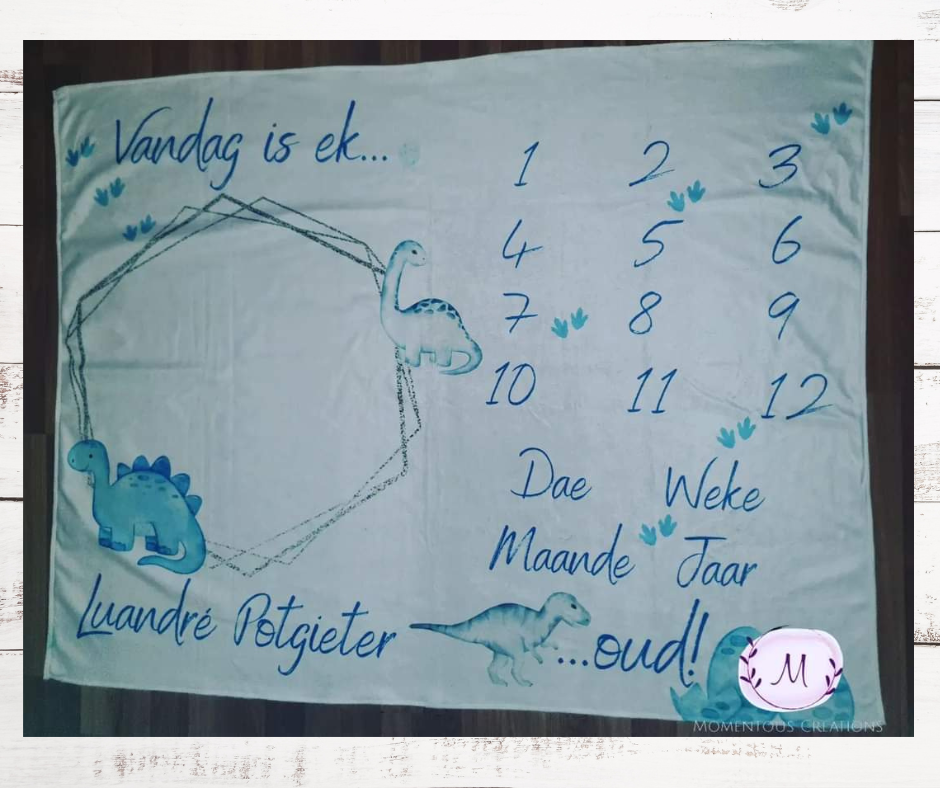 Vandag is ek...
1 2 3
4 5 6
7 8 9
10 11 12
Dae Weke
Maande Jaar
Luandré Potgieter ...oud!
M
MOMENTOUS CREATIONS